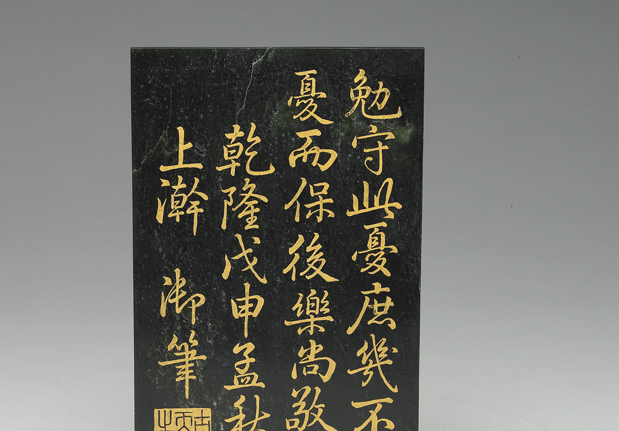 勉守此憂庶幾不
憂而保後樂尚敬
乾隆戊申孟秋
上澣 御筆